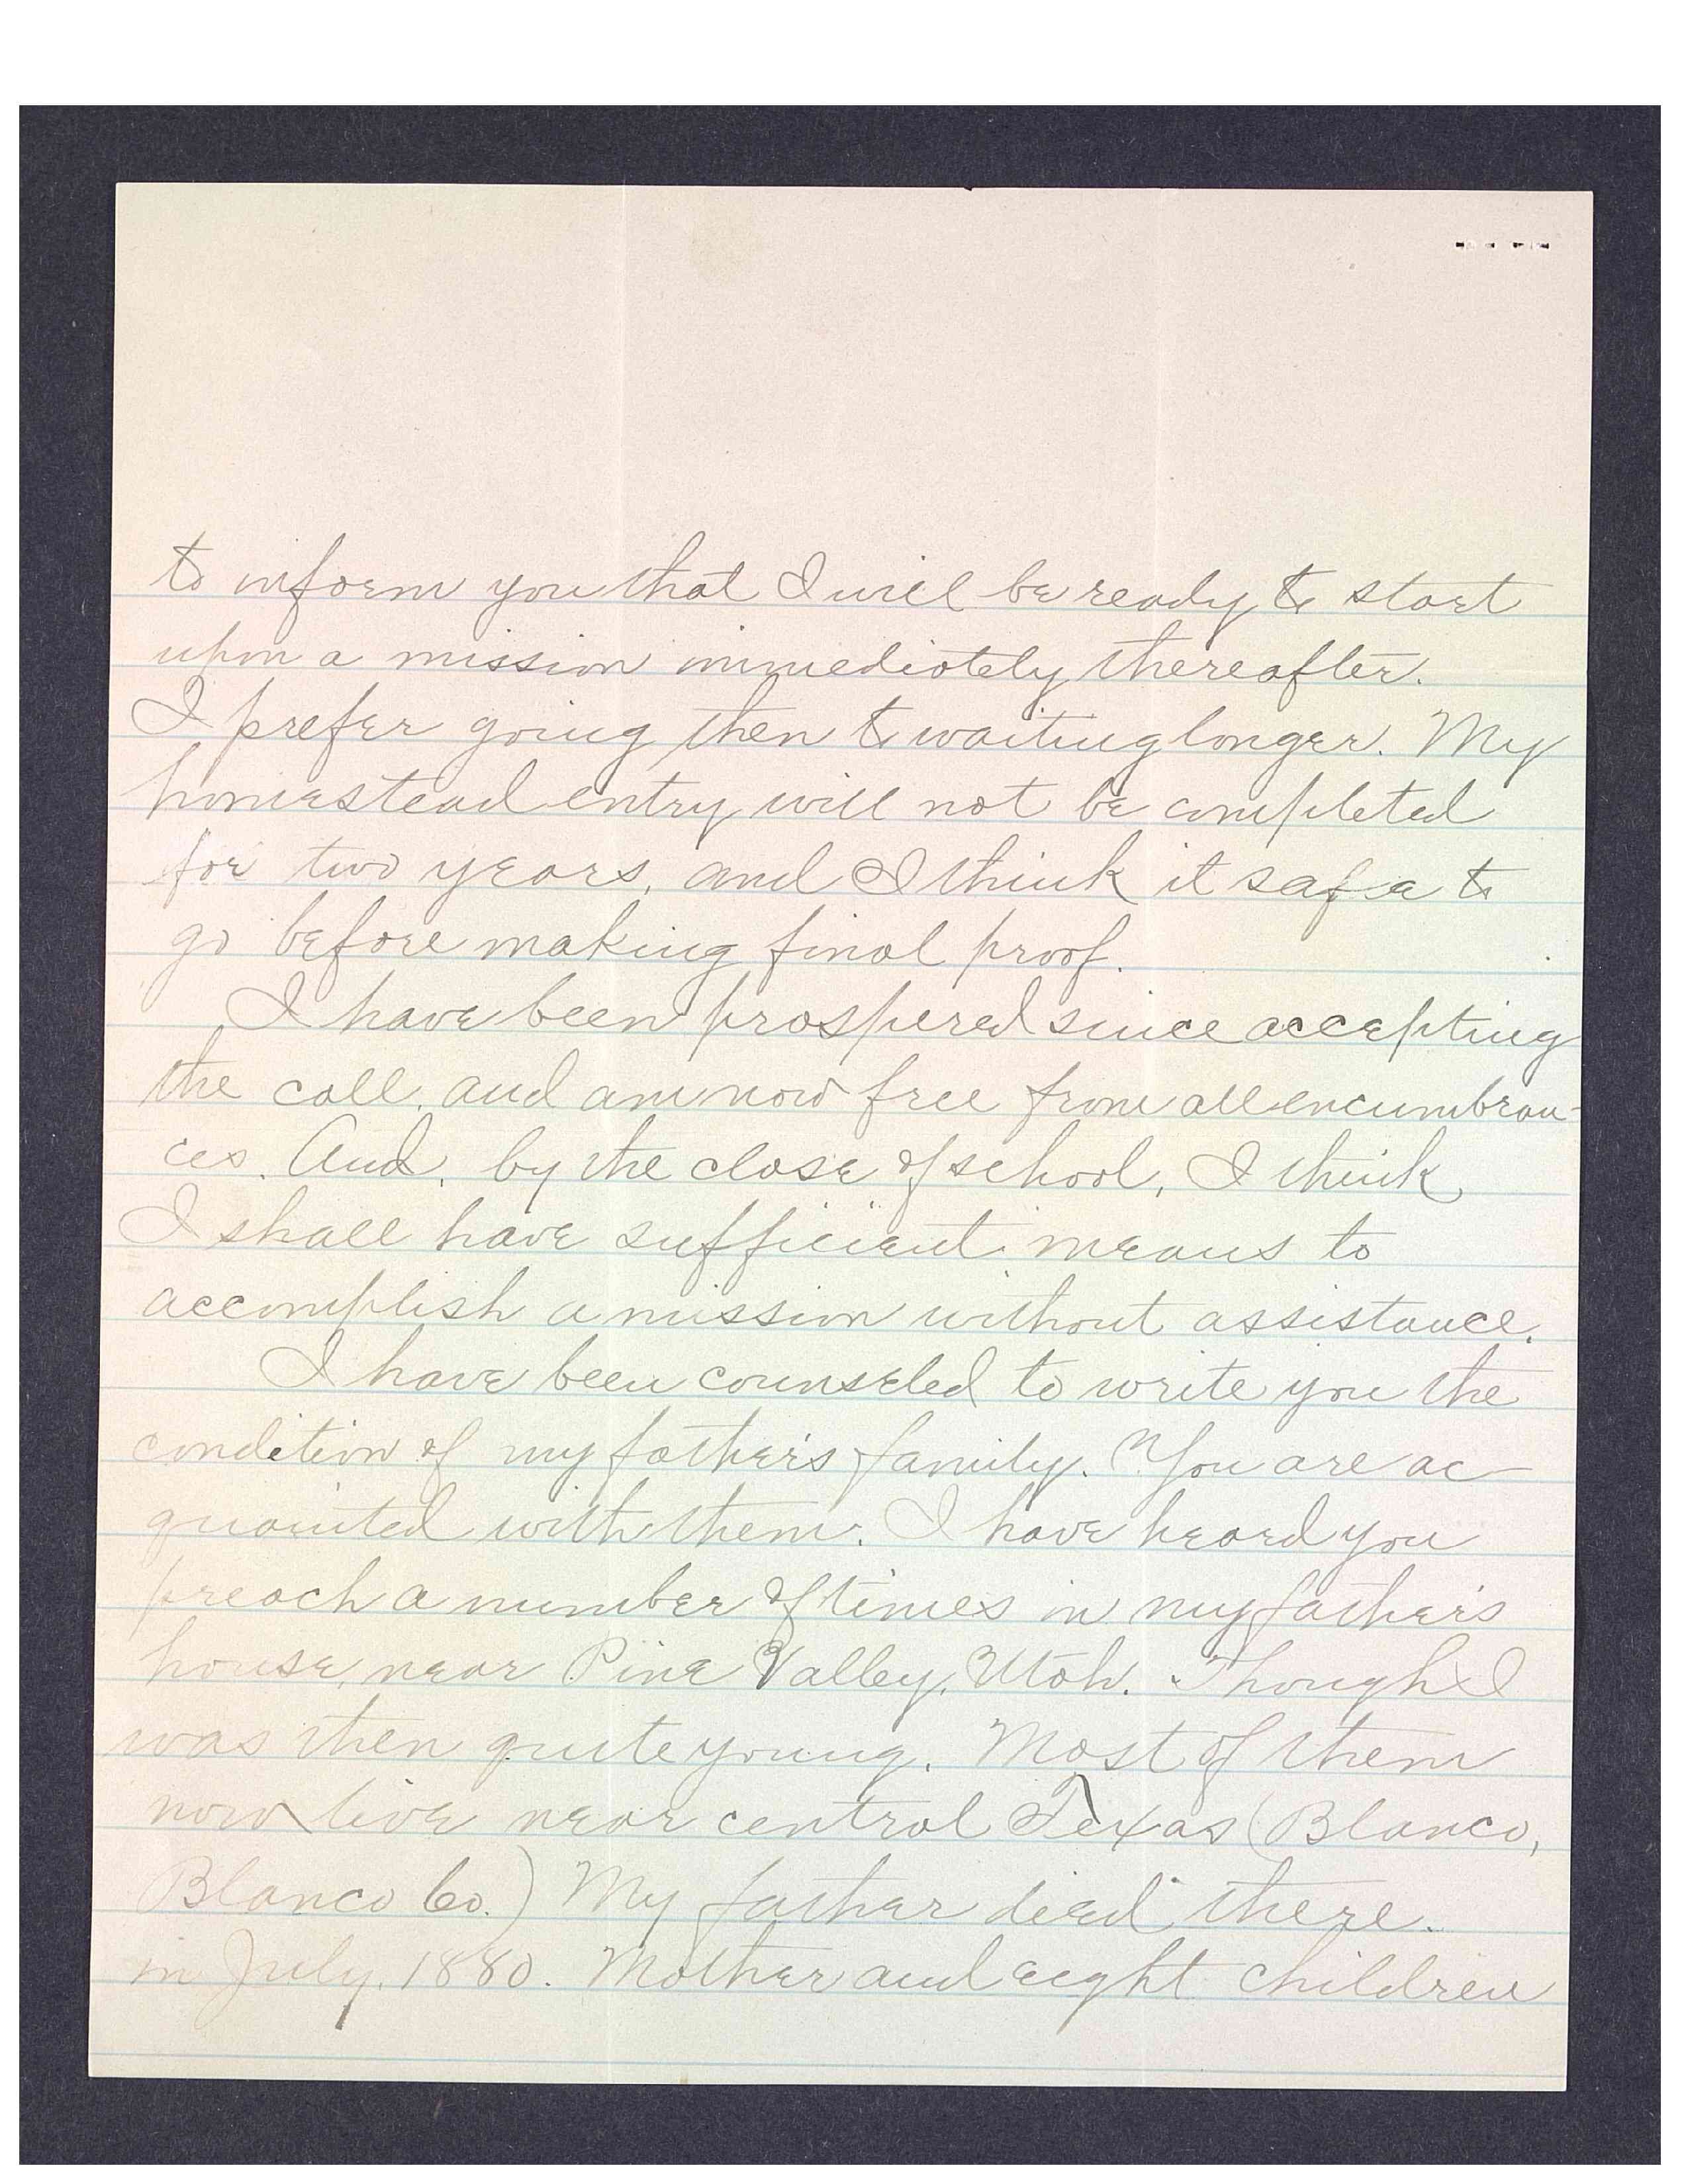 to inform you that I will be ready to start
upon a mission immediately thereafter.
I prefer going then to waiting longer. My
homestead entry will not be completed
for two years, and I think it safe to
go before making final proof.
I have been prospered since accepting
the call, and am now free from all encumbran-
ces. And, by the close of school, I think
I shall have sufficient means to
accomplish a mission without assistance.
I have been counseled to write you the
condition of my father's family. You are ac-
quainted with them. I have heard you
preach a number of times in my father's
house, near Pine Valley, Utah. Though I
was then quite young. Most of them
now live near central Texas (Blanco,
Blanco Co.) My father died there
in July, 1880. Mother and eight children